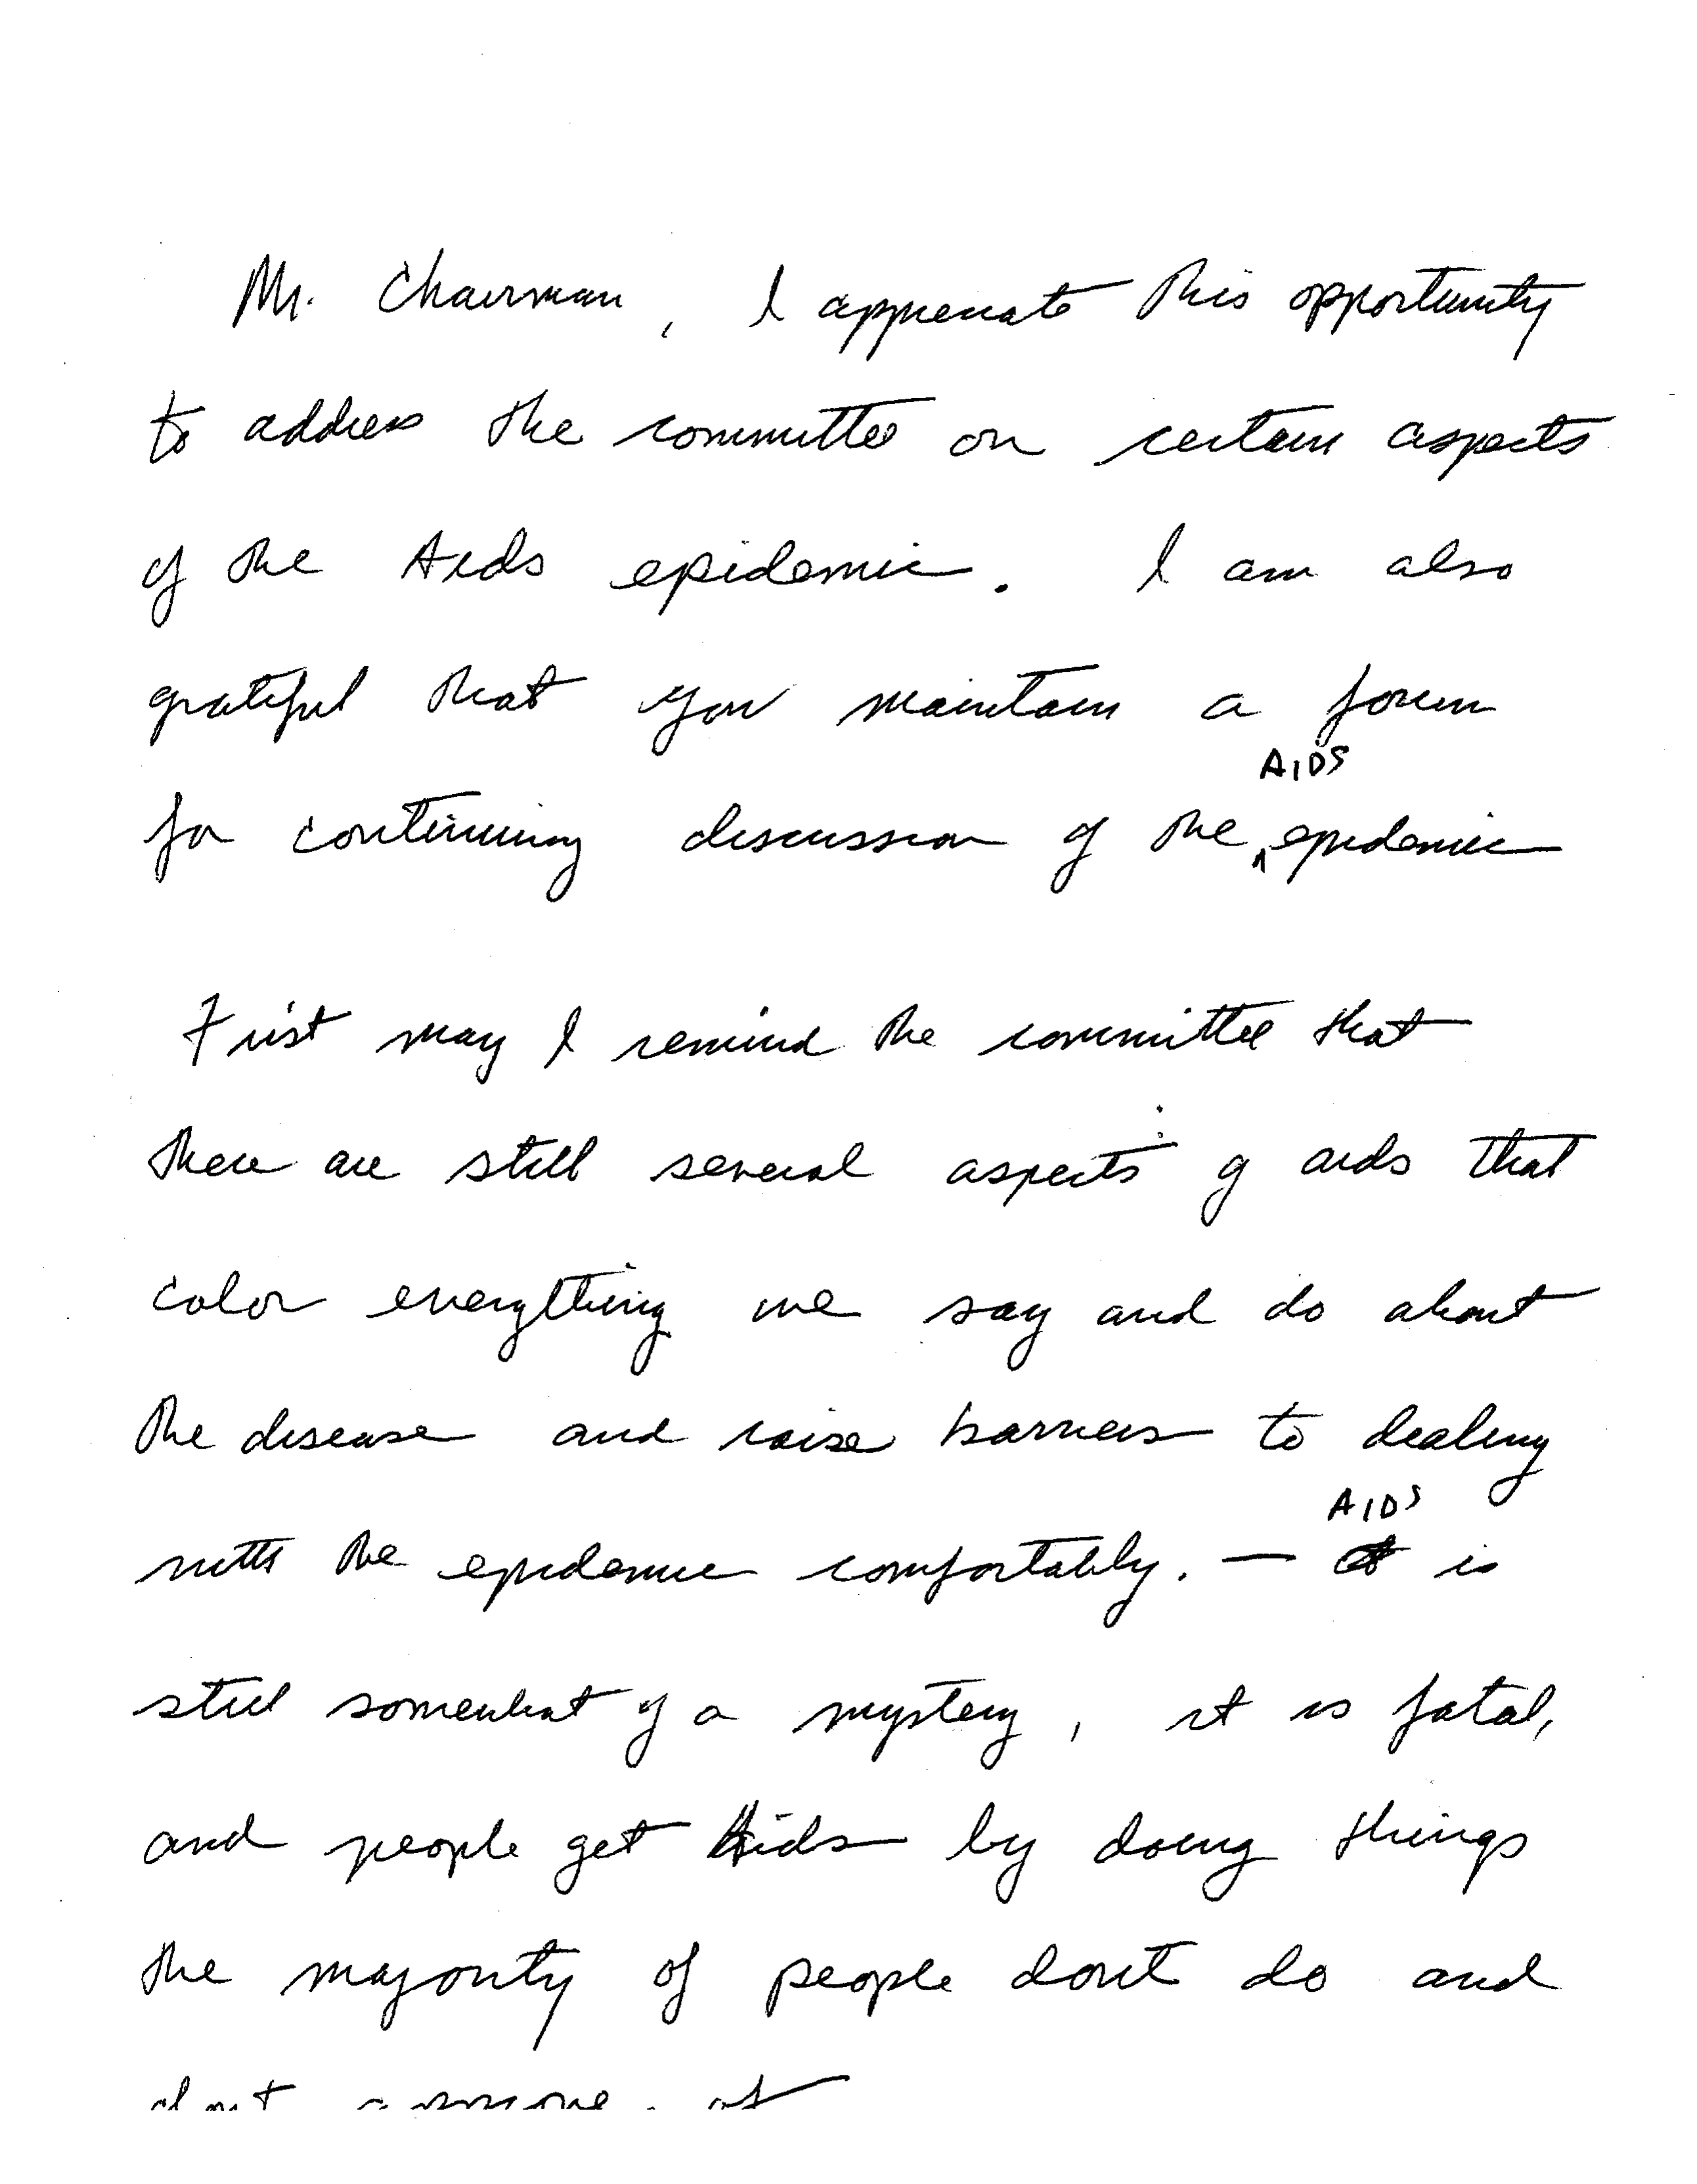 Mr. Chairman, I appreciate this opportunity
to address the committee on certain aspects
of the Aids epidemic. I am also
grateful that you maintain a forum
AIDS
for continuing discussion of the ^ epidemic
First may I remind the committee that
there are still several aspects of aids that
color everything we say and do about
the disease and raise barriers to dealing
AIDS
with the epidemic comfortably. — is
still somewhat of a mystery, it is fatal,
and people get Aids by doing things
the majority of people dont do and
dont approve of